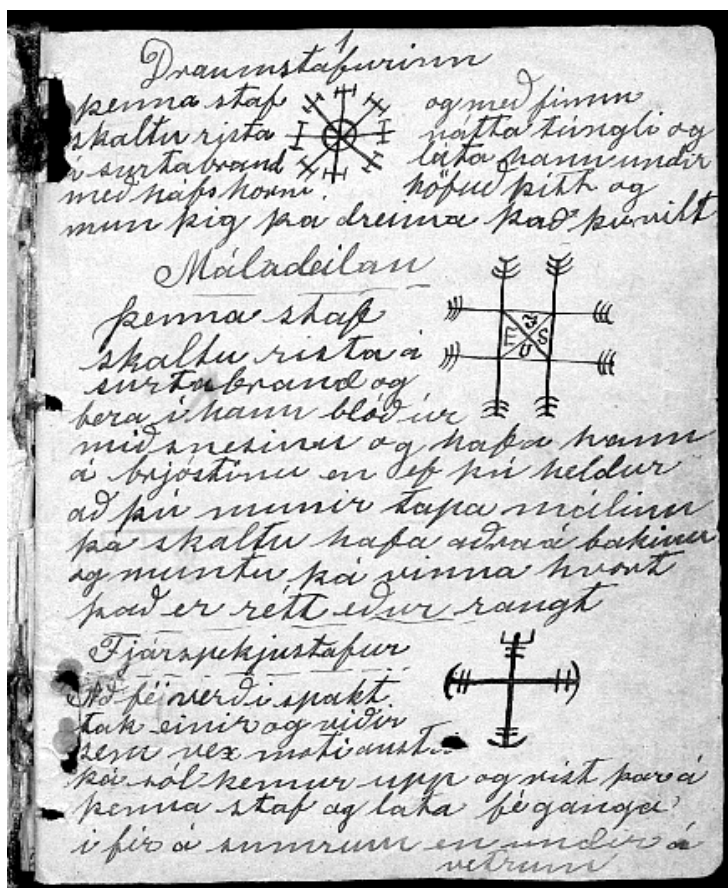 Draumstafurinn
þenna staf
skaltu rista
í surtabrand
með háfshorni.
og með fimm
nátta túngli og
láta hann undir
höfuð þitt og
mun þig þá dreima það þú vilt
Máladeilan
þenna staf
skaltu rista á
surtabrand og
bera í hann blóð úr
miðsnesinu og hafa hann
á brjóstinu en ef þú heldur
að þú munir tapa málinu
þá skaltu hafa aðra á bakinu
og muntu þá vinna hvort
það er rétt eður rangt
E R S U
Fjárspekjustafur
Að fé verði spakt
tak einir og viðir
sem vex moti
þá sól kemur upp og rist þar á
þenna staf og láta fé ganga
i fir á sumrum en undir á
vetrum